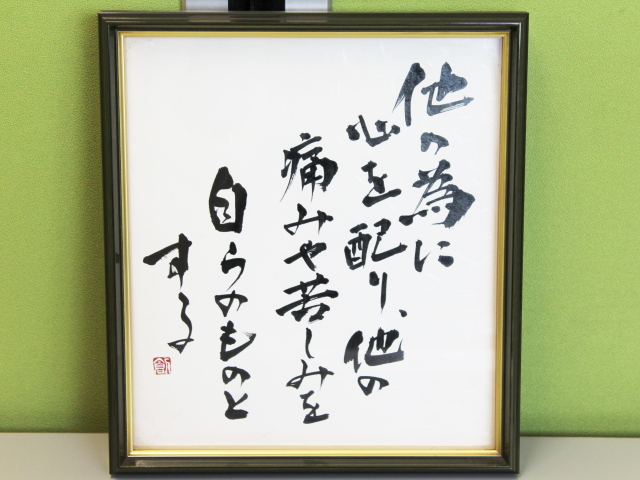 他の為に
心を配り、他の
痛みや苦しみを
自らのものと
する